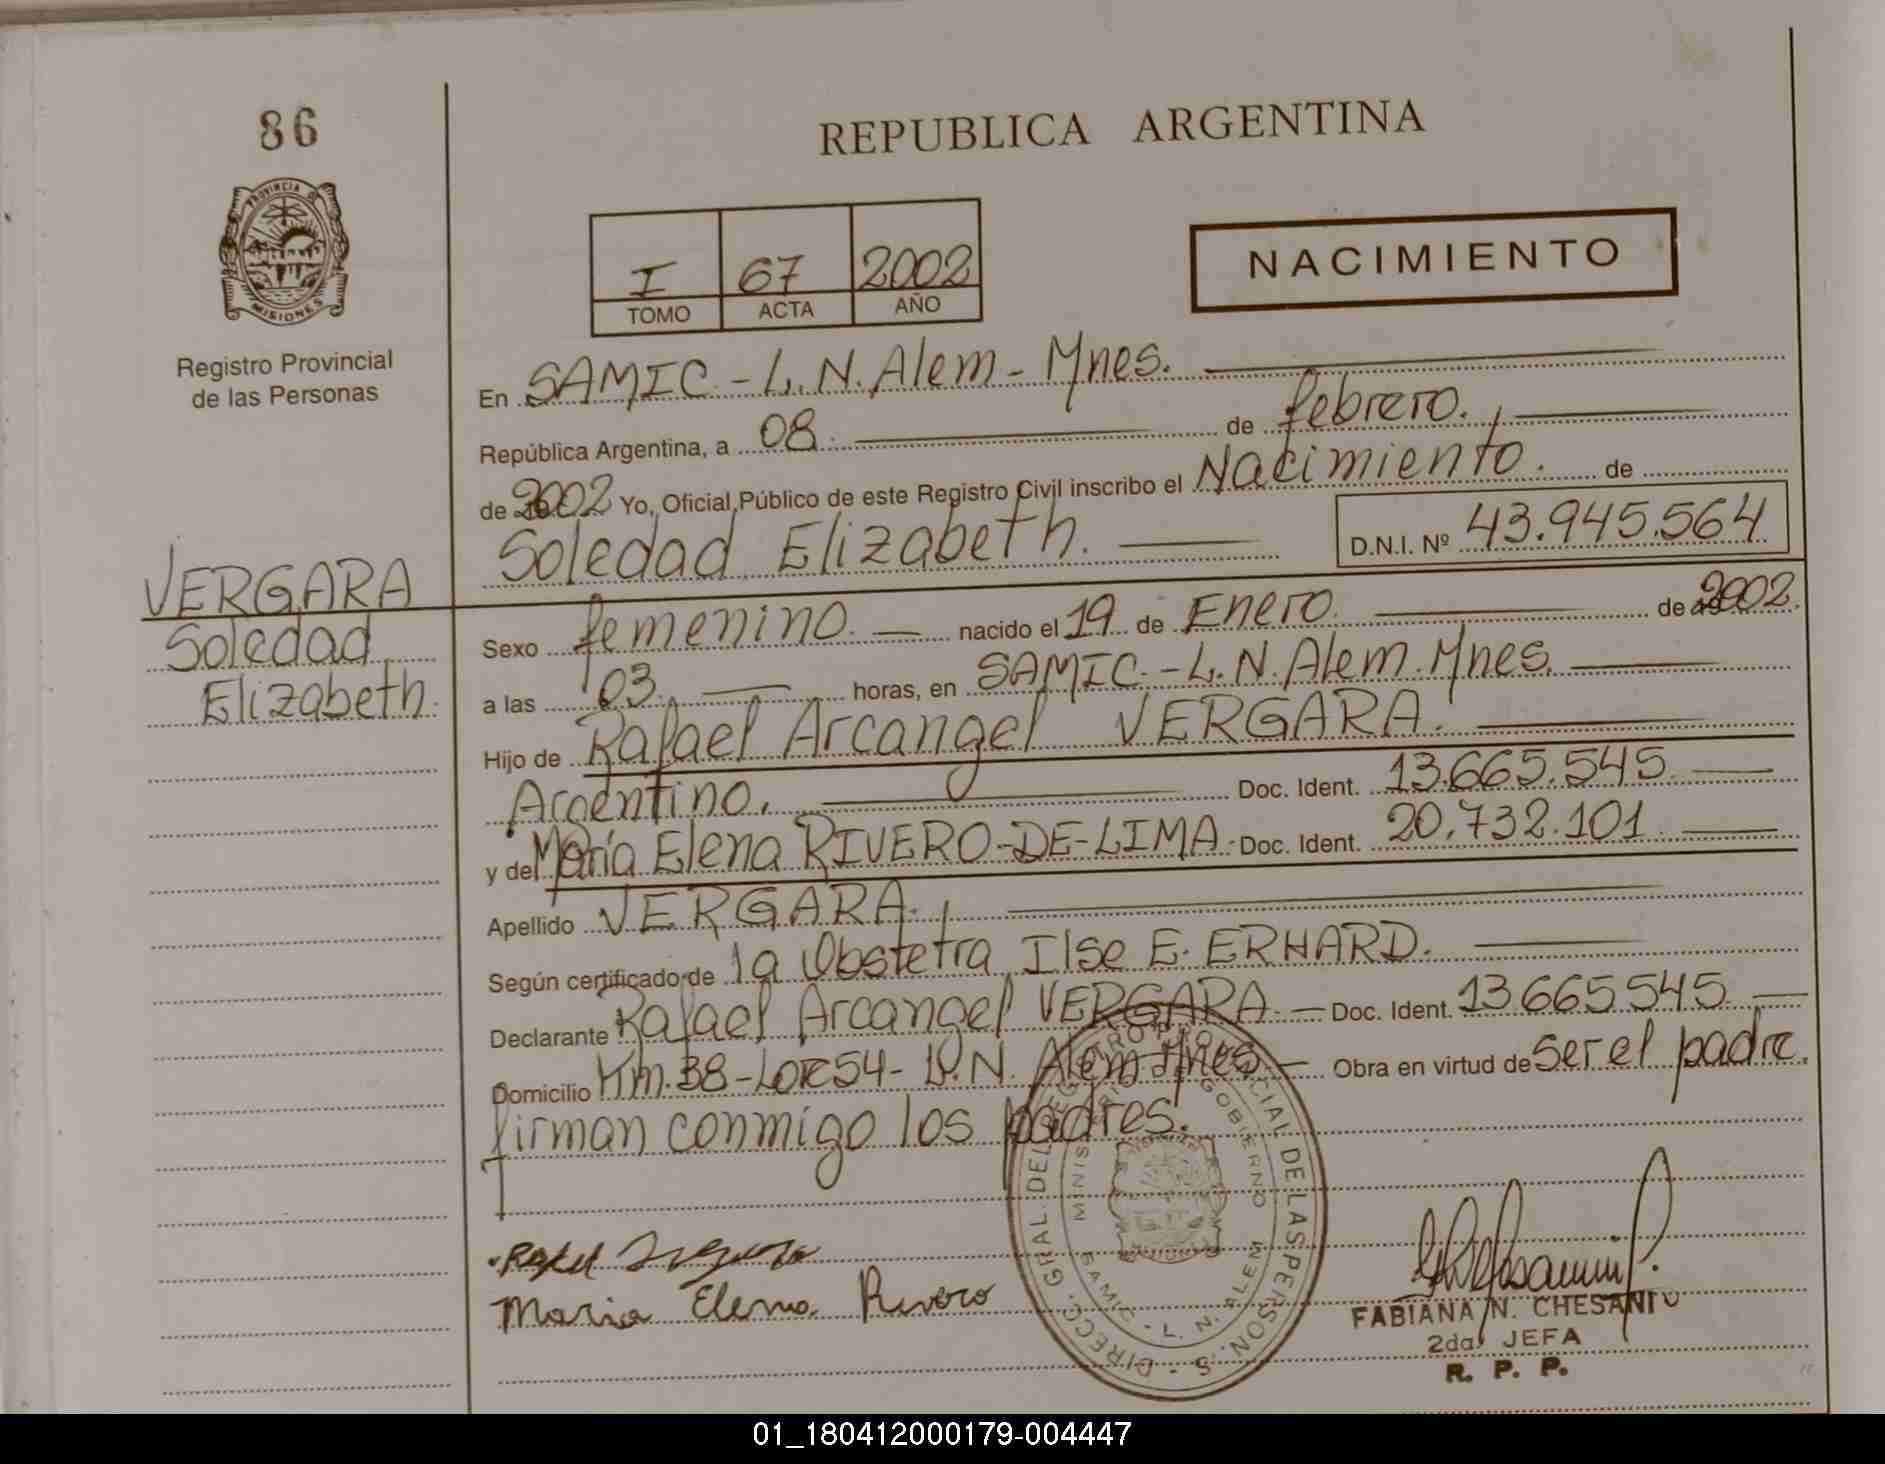 86
REPUBLICA ARGENTINA
PROVINCIA DE
MISIONES
Registro Provincial
de las Personas
I 67 2002
TOMO ACTA AÑO
NACIMIENTO
En SAMIC - L. N. Alem - Mnes.
República Argentina, a 08 de febrero.
de 2002 Yo, Oficial Público de este Registro Civil inscribo el Nacimiento. de
Soledad Elizabeth. D.N.I. Nº 43.945.564
VERGARA
Soledad
Elizabeth.
Sexo femenino. nacido el 19 de Enero. de 2002.
a las 03. horas, en SAMIC. - L. N. Alem. Mnes.
Hijo de Rafael Arcangel VERGARA.
Argentino. Doc. Ident. 13.665.545.
y de María Elena RIVERO-DE-LIMA. Doc. Ident. 20.732.101
Apellido VERGARA.
Según certificado de la Obstetra Ilse E. ERHARD.
Declarante Rafael Arcangel VERGARA. Doc. Ident. 13.665.545.
Domicilio Km. 38 - Lote 54 - L. N. Alem Mnes. Obra en virtud de ser el padre.
firman conmigo los padres.
DIRECC. GRAL. DEL REGISTRO PROVINCIAL DE LAS PERSONAS
SAMIC - L. N. ALEM
Maria Elena Rivero
FABIANA N. CHESANI
2da JEFA
R. P. P.
01_180412000179-004447